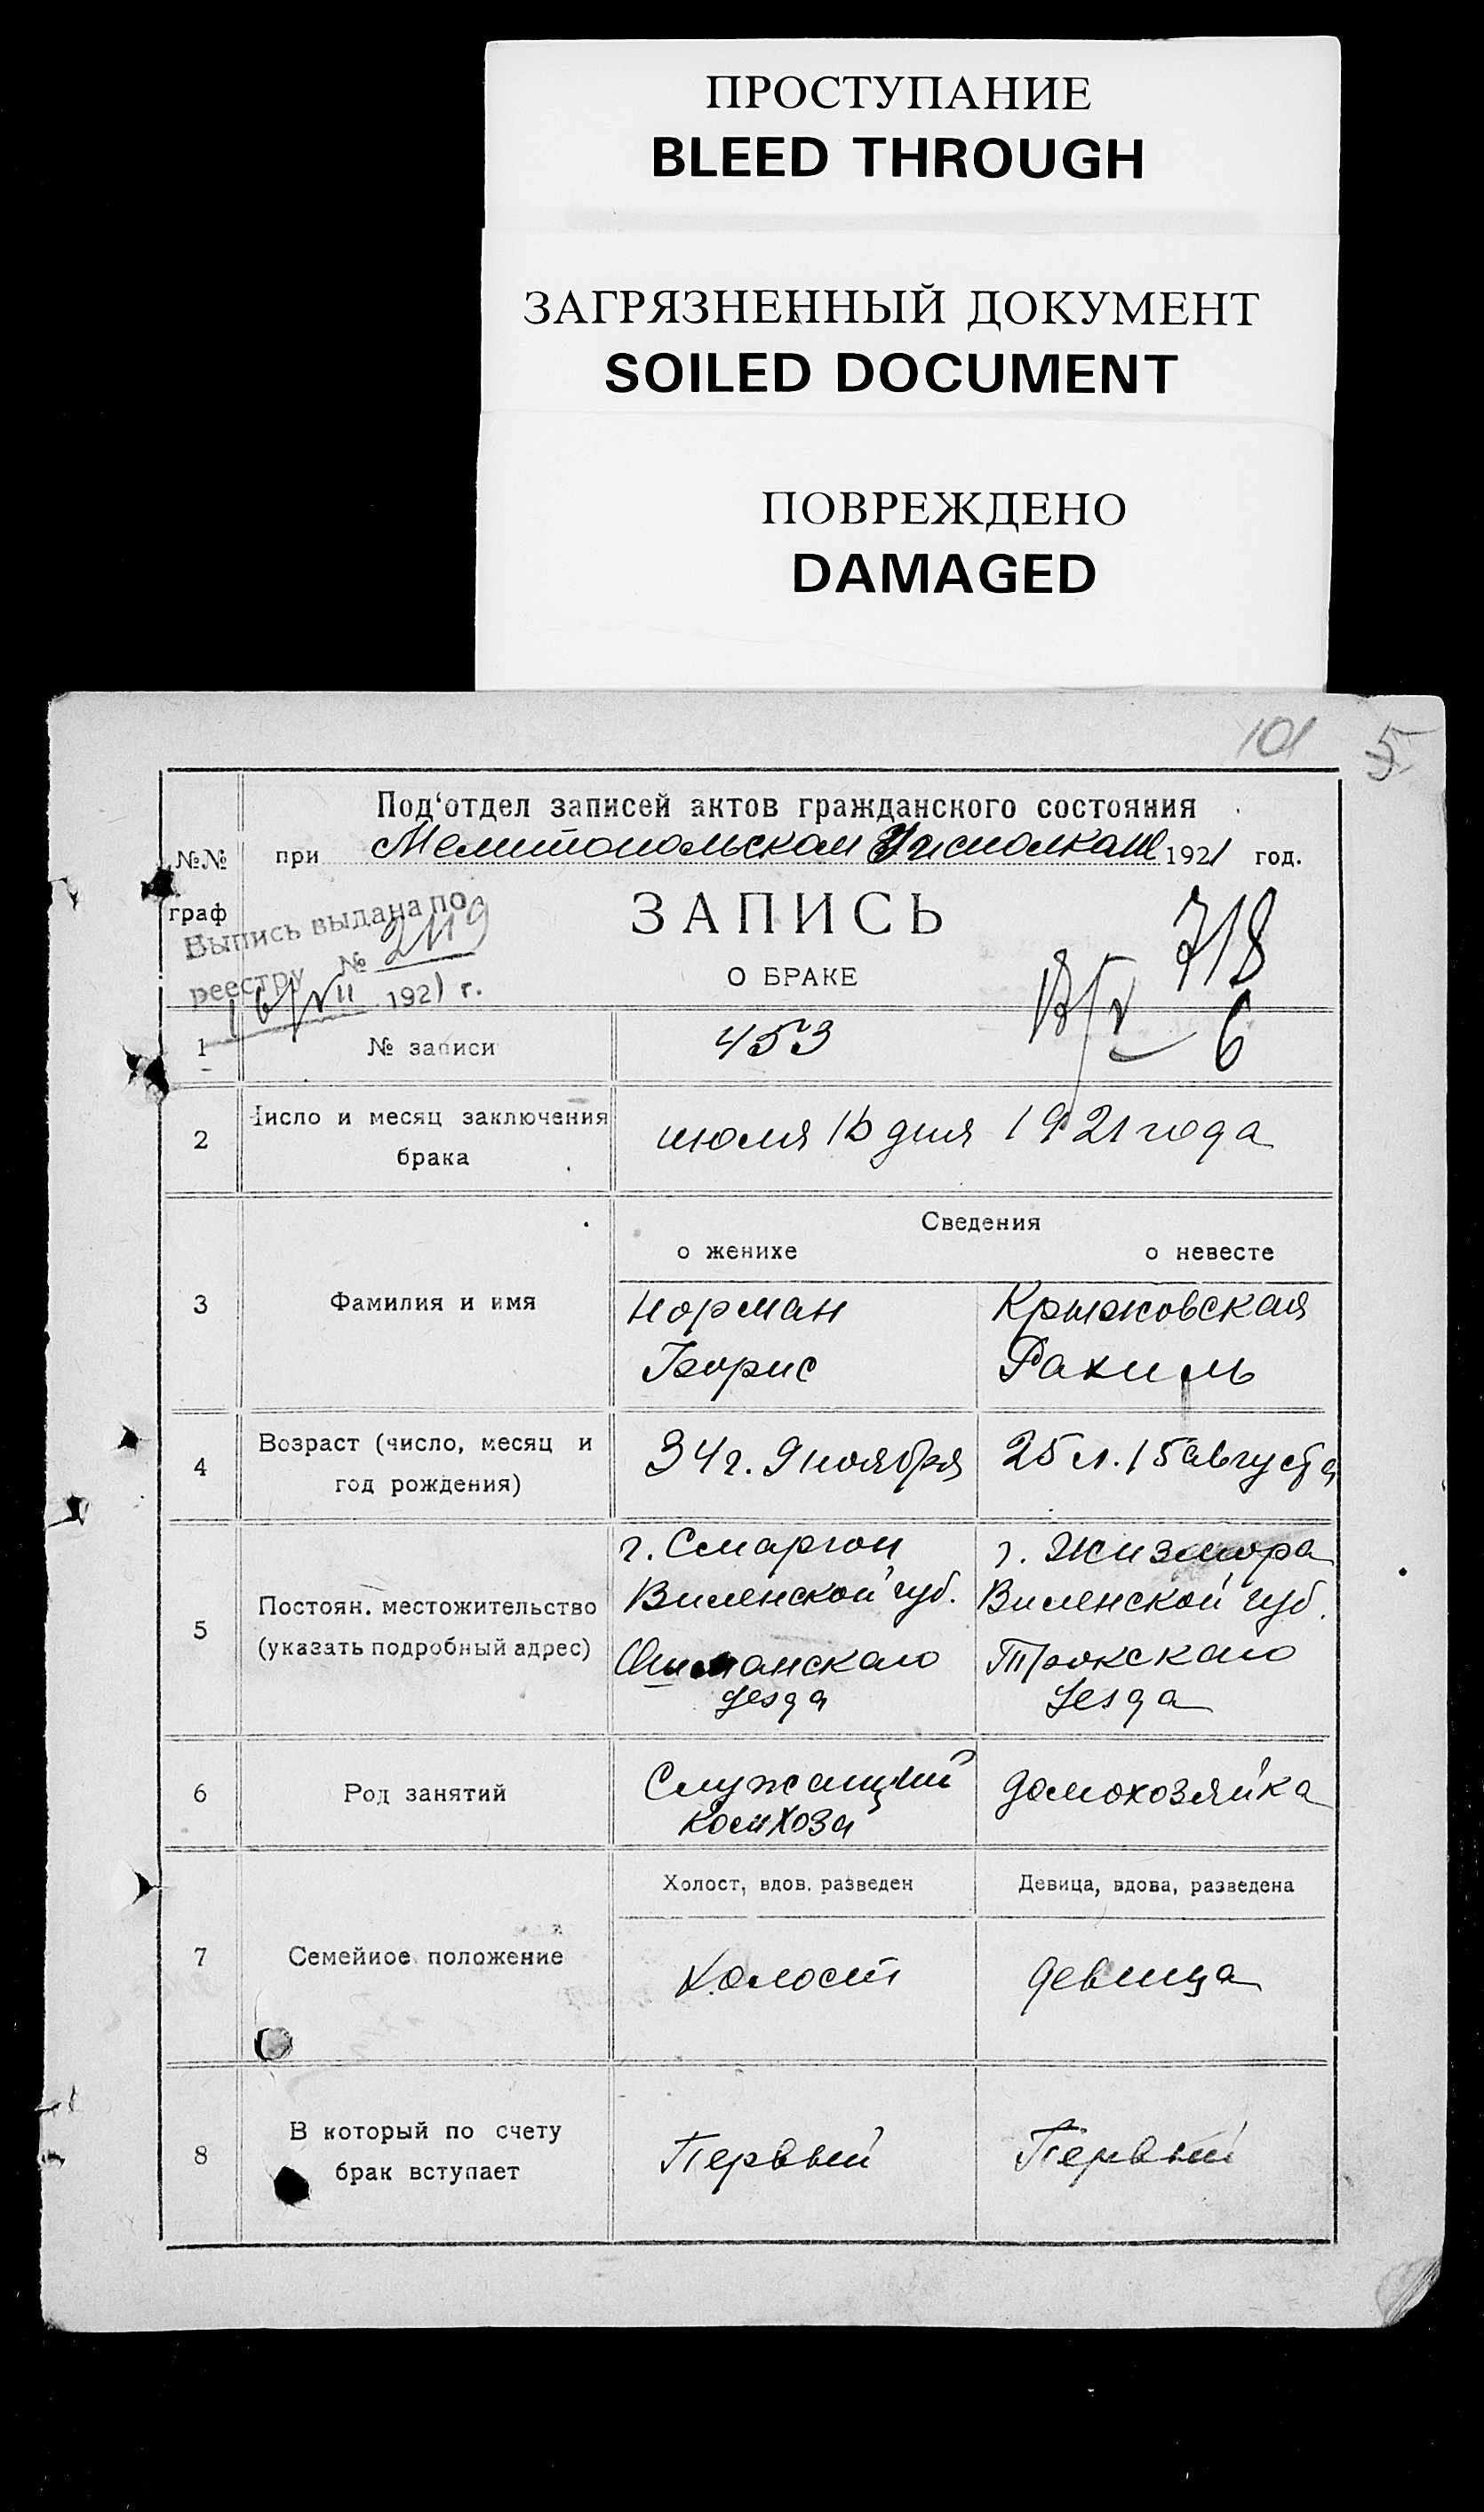 ПРОСТУПАНИЕ
BLEED THROUGH
ЗАГРЯЗНЕННЫЙ ДОКУМЕНТ
SOILED DOCUMENT
ПОВРЕЖДЕНО
DAMAGED
101 5
Под‘отдел записей актов гражданского состояния
№№ при Мелитопольском Уисполкоме 1921 год.
граф
ЗАПИСЬ
718
Выпись выдана по
реестру № 2119
О БРАКЕ
16/VII 1921 г.
6
1 № записи 453
2 Число и месяц заключения
брака
июля 16 дня 1921 года
Сведения
о женихе о невесте
3 Фамилия и имя Норман Крыжовская
Борис Рахиль
4 Возраст (число, месяц и
год рождения)
34 г. 9 ноября 25 л. 15 августа
г. Сморгон г. Жизмора
5 Постоян. местожительство Виленской губ. Виленской губ.
(указать подробный адрес) Ошманского Трокского
уезда уезда
6 Род занятий Служащий домохозяйка
Комхоза
Холост, вдов. разведен Девица, вдова, разведена
7 Семейное положение холост девица
8 В который по счету
брак вступает
Первый Первый